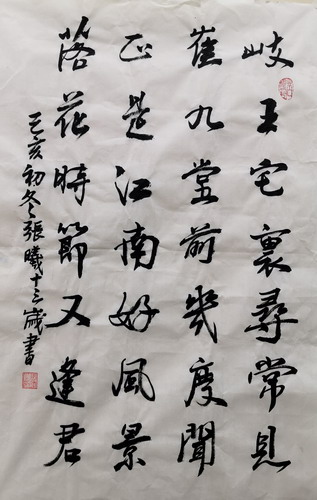 岐王宅裏尋常見
崔九堂前幾度聞
正是江南好風景
落花時節又逢君
己亥初冬張曦十三歲書